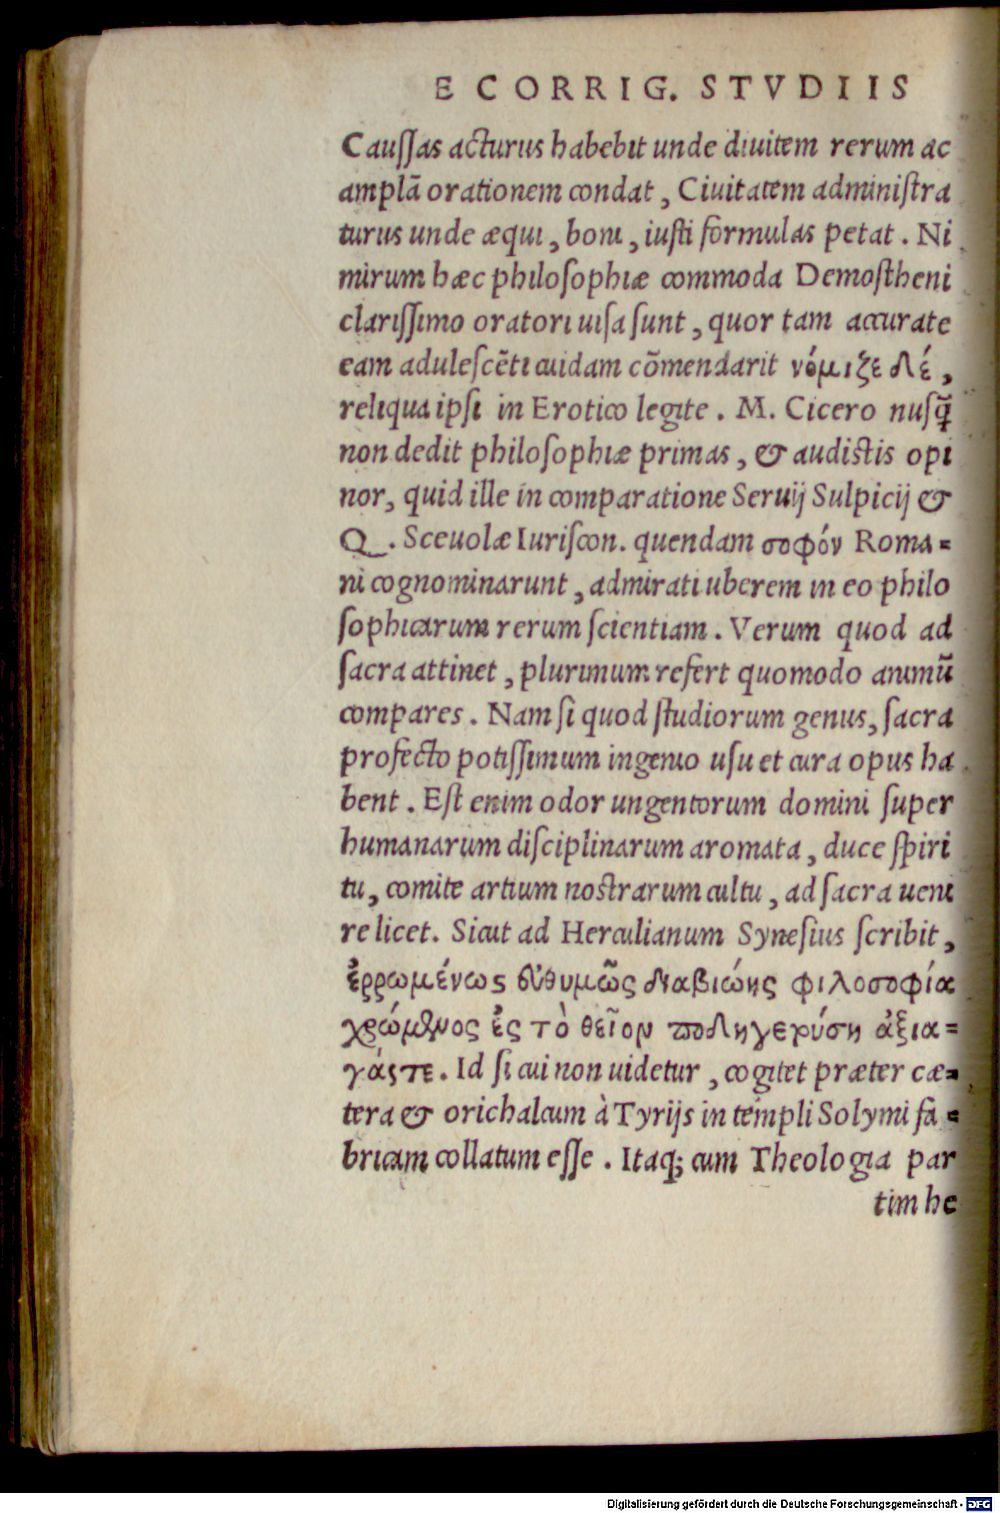 E CORRIG. STVDIIS
Cauſſas acturus habebit unde diuitem rerum ac
amplã orationem condat, Ciuitatem adminiſtra
turus unde æqui, boni, iuſti formulas petat. Ni
mirum hæc philoſophiæ commoda Demoſtheni
clariſſimo oratori uiſa ſunt, quor tam accurate
eam aduleſcẽti cuidam cõmendarit νόμιζε δέ,
reliqua ipſi in Erotico legite. M. Cicero nuſq̃
non dedit philoſophiæ primas, & audiſtis opi
nor, quid ille in comparatione Seruij Sulpicij &
Q. Sceuolæ Iuriſcon. quendam σοφόν Roma=
ni cognominarunt, admirati uberem in eo philo
ſophicarum rerum ſcientiam. Verum quod ad
ſacra attinet, plurimum refert quomodo animũ
compares. Nam ſi quod ſtudiorum genus, ſacra
profecto potiſſimum ingenio uſu et cura opus ha
bent. Eſt enim odor ungentorum domini ſuper
humanarum diſciplinarum aromata, duce ſpiri
tu, comite artium noſtrarum cultu, ad ſacra ueni
re licet. Sicut ad Herculianum Syneſius ſcribit,
ἐρρωμένως διαβιώης φιλοσοφία
ἐς τὸ θεῖον ἀξια=
γάστε. Id ſi cui non uidetur, cogitet præter cæ=
tera & orichalcum à Tyrijs in templi Solymi fa=
bricam collatum eſſe. Itaq; cum Theologia par
tim he
Digitalisierung gefördert durch die Deutsche Forschungsgemeinschaft - DFG